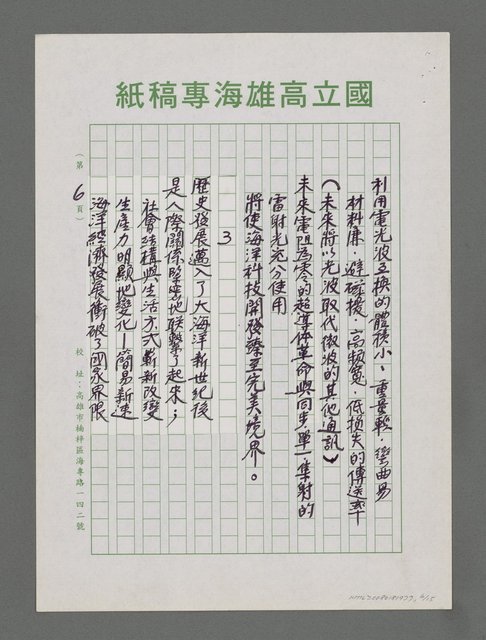 國立高雄海專稿紙
利用電光波互換的體積小、重量輕、彎曲易
材料廉、避磁擾、高頻寬、低損失的傳送率
(未來將以光波取代微波的其他通訊)
未來電阻為零的超導体革命與同步單一集射的
雷射光充分使用
將使海洋科技開發臻至完美境界。
3
歷史發展邁入了大海洋新世紀後
是人際關係緊密地联繫了起來；
社會結構與生活方式嶄新改變
生產力明顯地變化—簡易新速
海洋經濟發展衝破了國家界限
(第6頁)
校址：高雄市楠梓區海專路一四二號